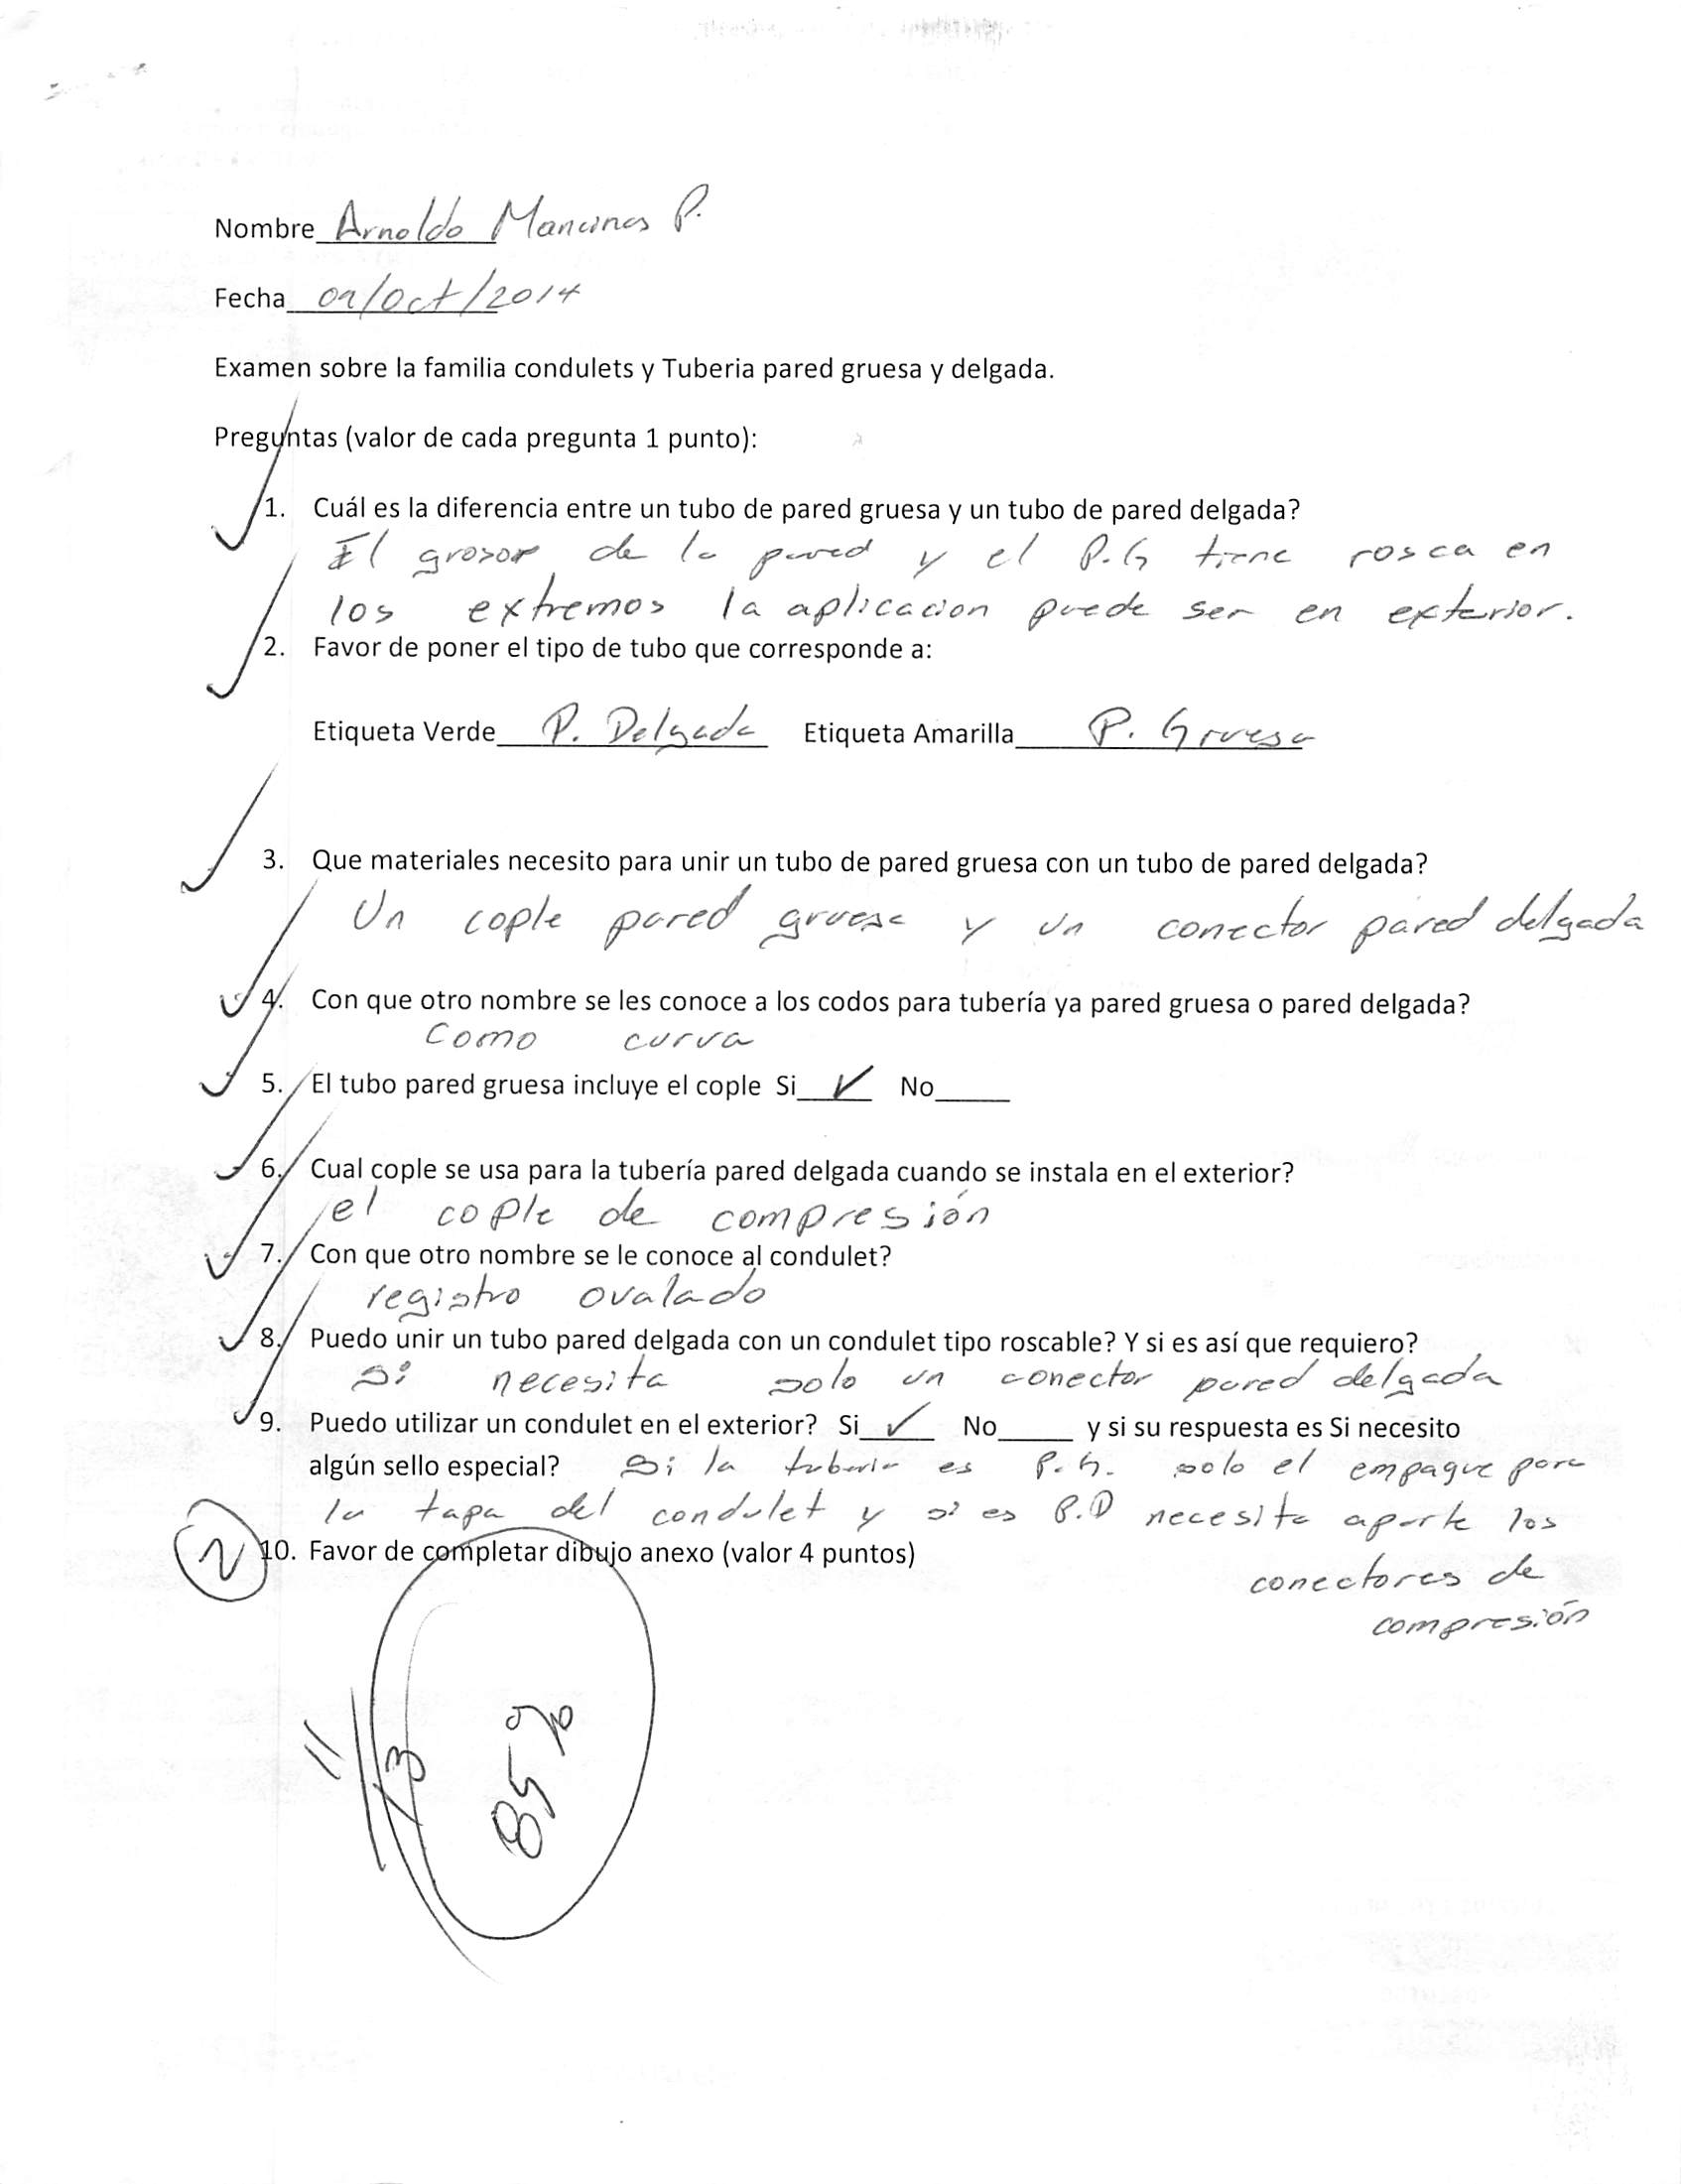 Nombre Arnoldo Mancinas P.
Fecha 09/Oct/2014
Examen sobre la familia condulets y Tuberia pared gruesa y delgada.
Preguntas (valor de cada pregunta 1 punto):
1. Cuál es la diferencia entre un tubo de pared gruesa y un tubo de pared delgada?
El grosor de la pared y el P.G tiene rosca en
los extremos la aplicacion puede ser en exterior.
2. Favor de poner el tipo de tubo que corresponde a:
Etiqueta Verde P. Delgada Etiqueta Amarilla P. Gruesa
3. Que materiales necesito para unir un tubo de pared gruesa con un tubo de pared delgada?
Un cople pared gruesa y un conector pared delgada
4. Con que otro nombre se les conoce a los codos para tubería ya pared gruesa o pared delgada?
Como curva
5. El tubo pared gruesa incluye el cople Si ✓ No
6. Cual cople se usa para la tubería pared delgada cuando se instala en el exterior?
el cople de compresión
7. Con que otro nombre se le conoce al condulet?
registro ovalado
8. Puedo unir un tubo pared delgada con un condulet tipo roscable? Y si es así que requiero?
Si necesita solo un conector pared delgada
9. Puedo utilizar un condulet en el exterior? Si ✓ No y si su respuesta es Si necesito
algún sello especial? Si la tuberia es P.G. solo el empaque para
la tapa del condulet y si es P.D necesita aparte los
conectores de
compresión
2 10. Favor de completar dibujo anexo (valor 4 puntos)
11/13
85%